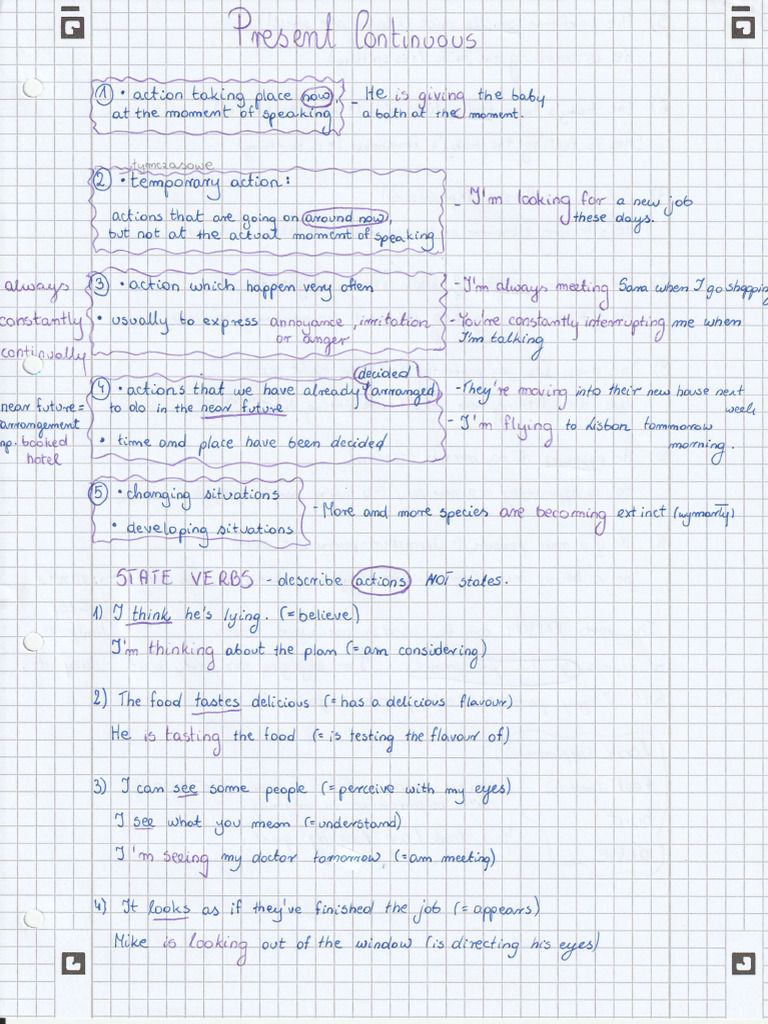 Present Continuous
1 • action taking place now, at the moment of speaking - He is giving the baby a bath at the moment.
tymczasowe
2 • temporary action:
actions that are going on around now, but not at the actual moment of speaking
- I'm looking for a new job these days.
always
constantly
continually
3 • action which happen very often
• usually to express annoyance, irritation or anger
- I'm always meeting Sara when I go shopping
- You're constantly interrupting me when I'm talking
near future = arrangement
np. booked hotel
decided
4 • actions that we have already arranged to do in the near future
• time and place have been decided
- They're moving into their new house next week
- I'm flying to Lisbon tommorow morning.
5 • changing situations
• developing situations
- More and more species are becoming extinct (wymarły)
STATE VERBS - describe actions NOT states.
1) I think he's lying. (= believe)
I'm thinking about the plan (= am considering)
2) The food tastes delicious (= has a delicious flavour)
He is tasting the food (= is testing the flavour of)
3) I can see some people (= perceive with my eyes)
I see what you mean (= understand)
I'm seeing my doctor tomorrow. (= am meeting)
4) It looks as if they've finished the job (= appears)
Mike is looking out of the window (is directing his eyes)